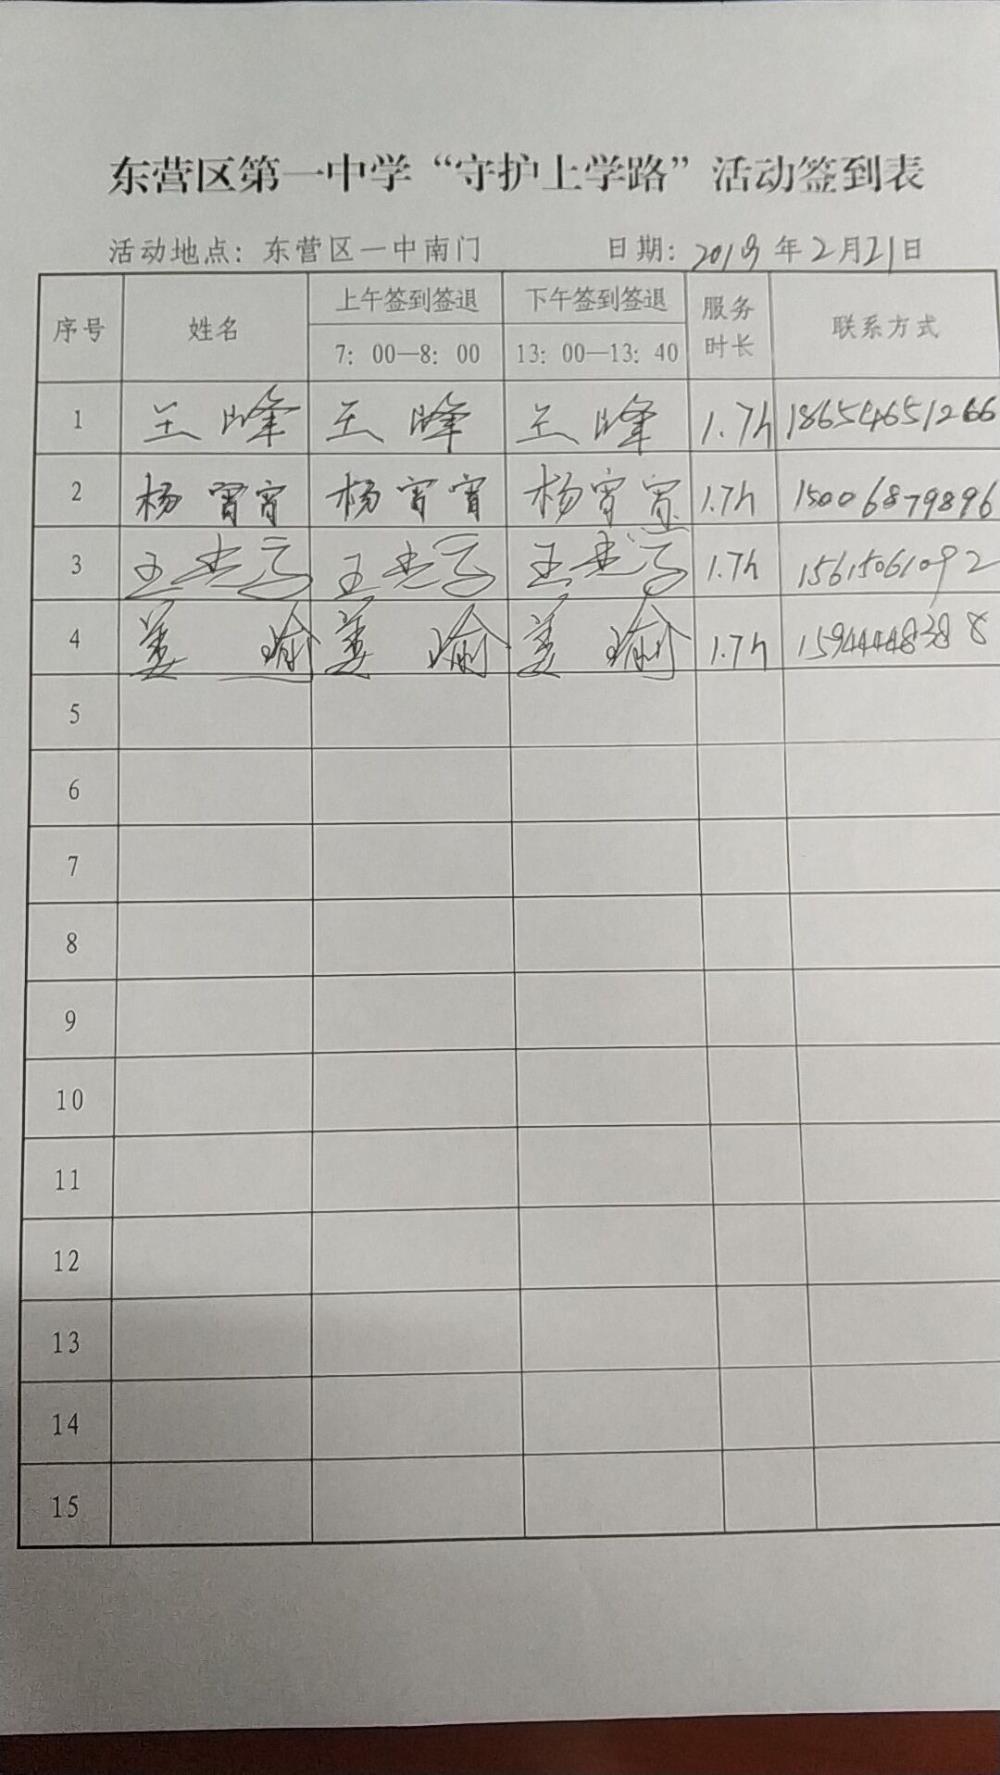 东营区第一中学“守护上学路”活动签到表
活动地点：东营区一中南门 日期：2019年2月21日
序号 姓名 上午签到签退 下午签到签退 服务时长 联系方式
7：00—8：00 13：00—13：40
1 王峰 王峰 王峰 1.7h 18654651266
2 杨宵宵 杨宵宵 杨宵宵 1.7h 15006879896
3 王 王 王 1.7h 15615061092
4 姜瑜 姜瑜 姜瑜 1.7h 15944448388
5
6
7
8
9
10
11
12
13
14
15